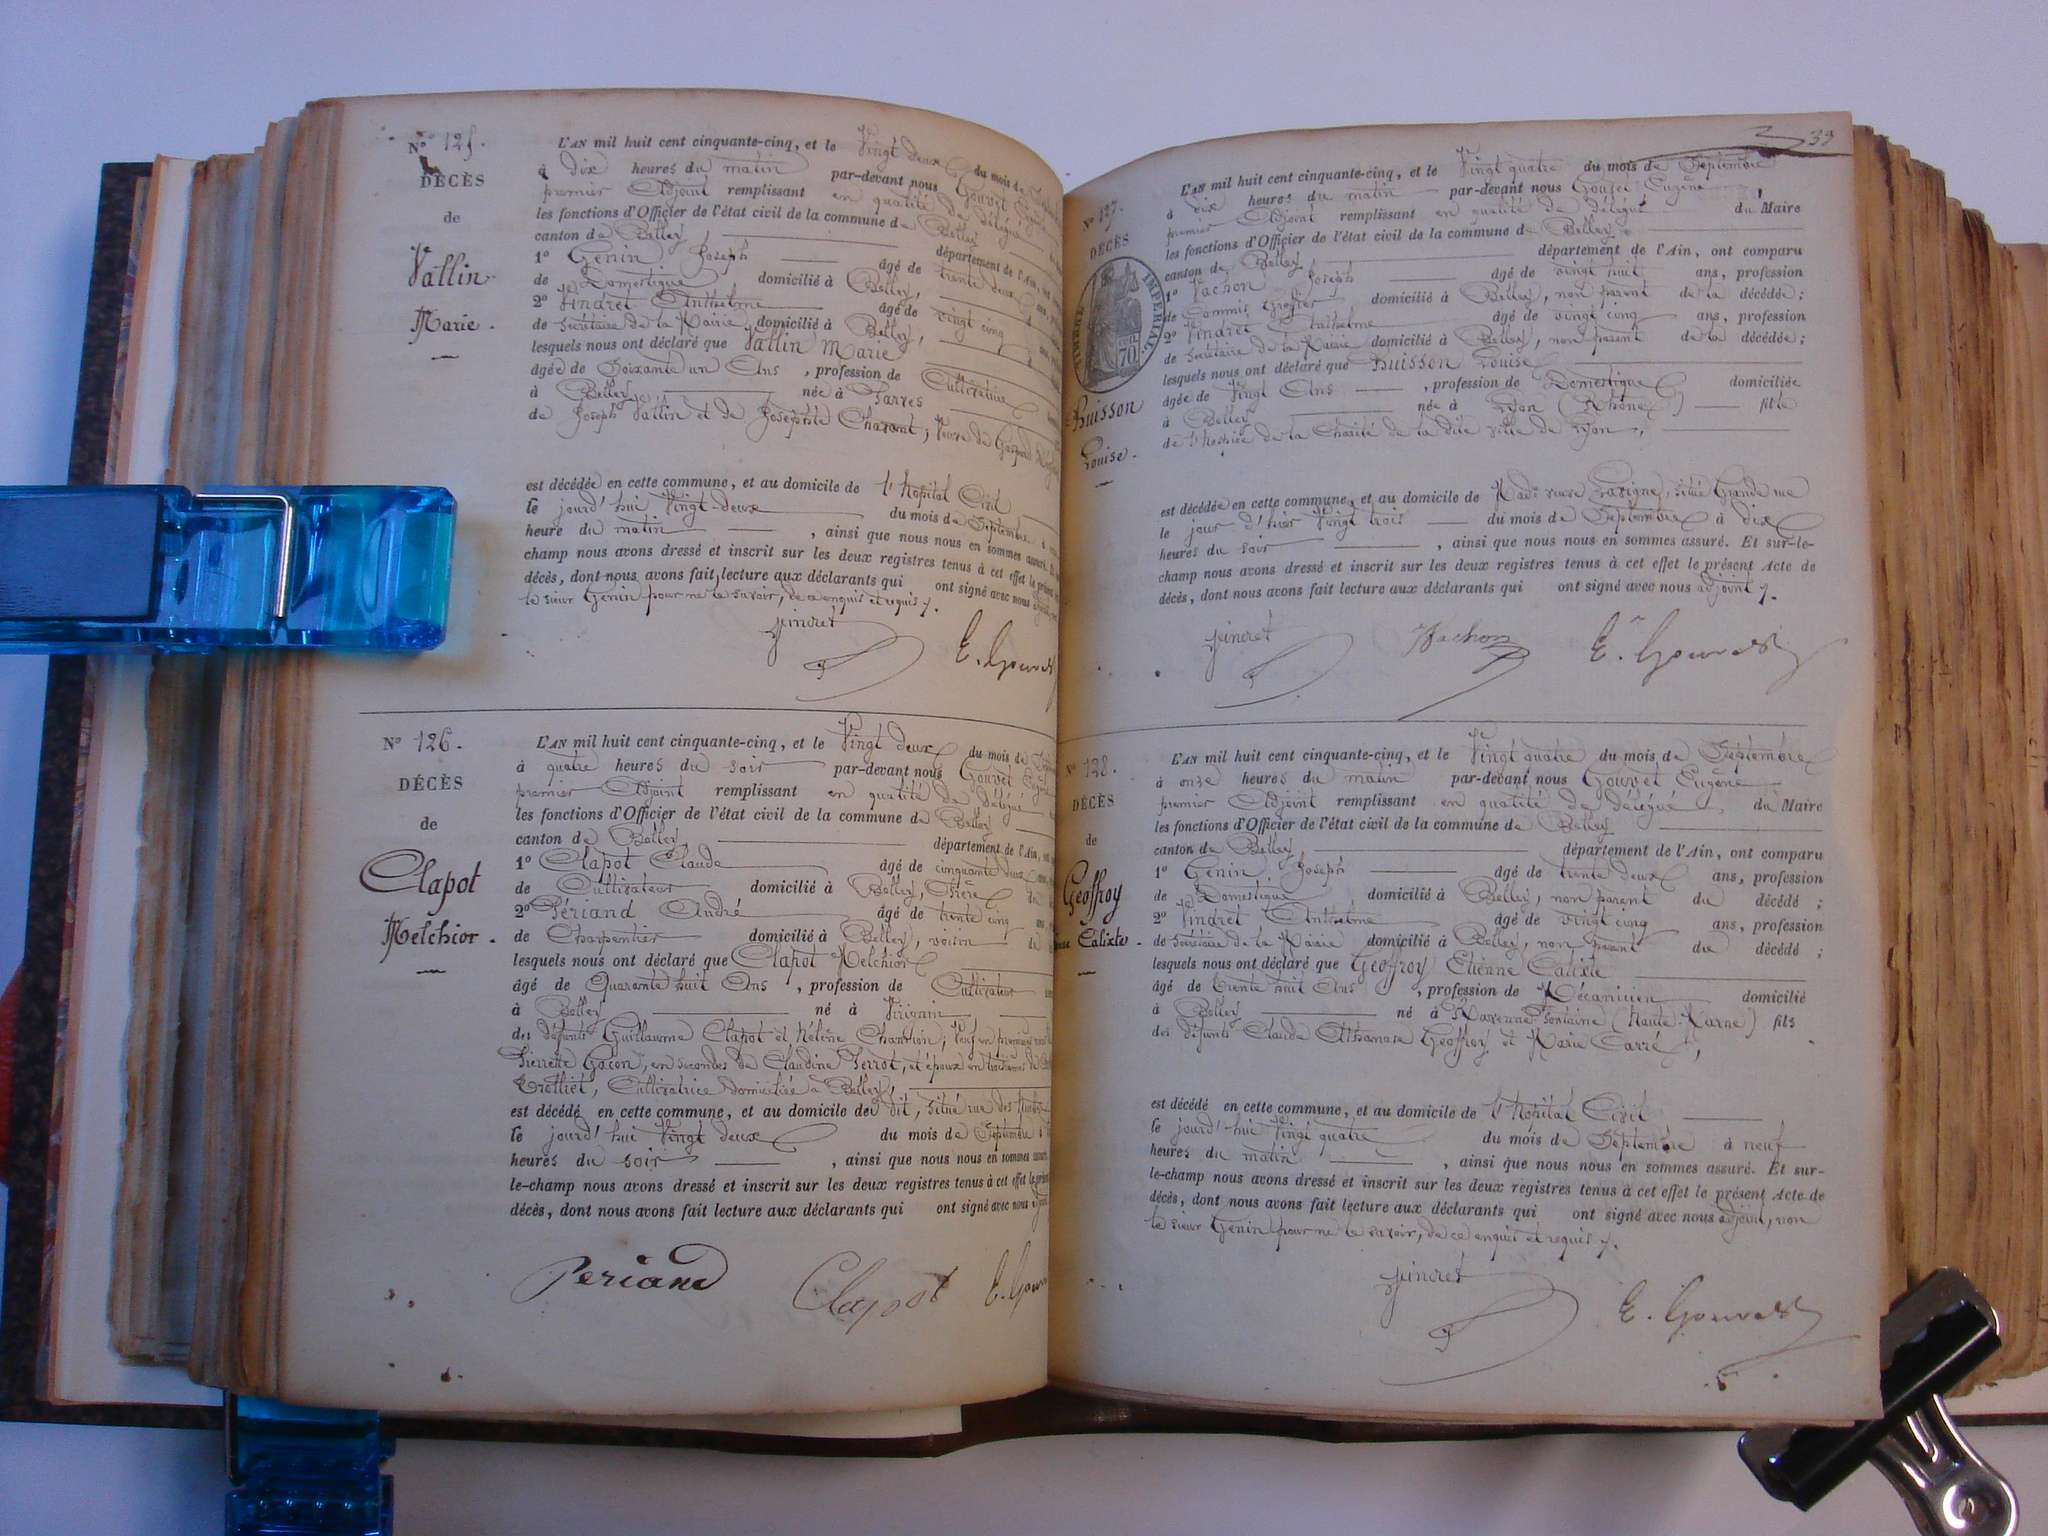 N° 125.
DÉCÈS
de
Vallin
Marie.
L'AN mil huit cent cinquante-cinq, et le Vingt deux du mois de
à dix heures du matin par-devant nous Gouvet
premier Adjoint remplissant en qualité de délégué
les fonctions d'Officier de l'état civil de la commune de Belley
canton de Belley, département de l'Ain,
1° Génin Joseph âgé de trente deux
de Domestique domicilié à Belley,
2° Vindret Anthelme âgé de vingt cinq
de Secrétaire de la Mairie domicilié à Belley,
lesquels nous ont déclaré que Vallin Marie
âgée de Soixante un Ans, profession de Cultivatrice
à Belley née à Parves
de Joseph Vallin et de Josephte ; Veuve de Gaspard
est décédée en cette commune, et au domicile de l'hopital Civil
le jourd'hui Vingt-deux du mois de Septembre à
heure du matin, ainsi que nous nous en sommes assuré.
champ nous avons dressé et inscrit sur les deux registres tenus à cet effet le présent
décès, dont nous avons fait lecture aux déclarants qui ont signé avec nous
le sieur Génin pour ne le savoir, de ce enquis et requis.
Vindret E. Gouvet
N° 126.
DÉCÈS
de
Clapot
Melchior.
L'AN mil huit cent cinquante-cinq, et le Vingt deux du mois de
à quatre heures du soir par-devant nous Gouvet
premier Adjoint remplissant en qualité de délégué
les fonctions d'Officier de l'état civil de la commune de Belley
canton de Belley, département de l'Ain,
1° Clapot Claude âgé de cinquante deux
de Cultivateur domicilié à Belley, frère du
2° Périand André âgé de trente cinq
de Charpentier domicilié à Belley, voisin du
lesquels nous ont déclaré que Clapot Melchior
âgé de Quarante huit Ans, profession de Cultivateur
à Belley né à Virignin
des défunts Guillaume Clapot et Hélène ; Veuf en premières
Pierrette Gacon, en secondes de Claudine Perrot, et époux en troisièmes de
Trolliet, Cultivatrice domiciliée à Belley,
est décédé en cette commune, et au domicile dudit, situé rue des
le jourd'hui Vingt deux du mois de Septembre à
heures du soir, ainsi que nous nous en sommes assuré.
le-champ nous avons dressé et inscrit sur les deux registres tenus à cet effet le présent
décès, dont nous avons fait lecture aux déclarants qui ont signé avec nous
Periand Clapot E. Gouvet
39
N° 127.
DÉCÈS
TIMBRE IMPERIAL
70
Buisson
Louise.
L'AN mil huit cent cinquante-cinq, et le Vingt quatre du mois de Septembre
à dix heures du matin par-devant nous Gouvet Eugène
premier Adjoint remplissant en qualité de délégué du Maire
les fonctions d'Officier de l'état civil de la commune de Belley
canton de Belley département de l'Ain, ont comparu
1° Vachon Joseph âgé de vingt huit ans, profession
de Commis Greffier domicilié à Belley, non parent de la décédée ;
2° Vindret Anthelme âgé de vingt cinq ans, profession
de Secrétaire de la Mairie domicilié à Belley, non parent de la décédée ;
lesquels nous ont déclaré que Buisson Louise
âgée de Vingt Ans, profession de Domestique domiciliée
à Belley née à Lyon (Rhône) fille
de l'hospice de la Charité de la dite ville de Lyon,
est décédée en cette commune, et au domicile de Made veuve Lavigne, situé Grande rue
le jour d'hier Vingt trois du mois de Septembre à dix
heures du soir, ainsi que nous nous en sommes assuré. Et sur-le-
champ nous avons dressé et inscrit sur les deux registres tenus à cet effet le présent Acte de
décès, dont nous avons fait lecture aux déclarants qui ont signé avec nous adjoint.
Vindret Vachon E. Gouvet
N° 128.
DÉCÈS
de
Geoffroy
Calixte.
L'AN mil huit cent cinquante-cinq, et le Vingt quatre du mois de Septembre
à onze heures du matin par-devant nous Gouvet Eugène
premier Adjoint remplissant en qualité de délégué du Maire
les fonctions d'Officier de l'état civil de la commune de Belley
canton de Belley département de l'Ain, ont comparu
1° Génin Joseph âgé de trente deux ans, profession
de Domestique domicilié à Belley, non parent du décédé ;
2° Vindret Anthelme âgé de vingt cinq ans, profession
de Secrétaire de la Mairie domicilié à Belley, non parent du décédé ;
lesquels nous ont déclaré que Geoffroy Etienne Calixte
âgé de trente huit Ans, profession de Mécanicien domicilié
à Belley né à Fontaine (Haute-Marne) fils
des défunts Claude Athanase Geoffroy et Marie Carré,
est décédé en cette commune, et au domicile de l'hopital Civil
le jourd'hui Vingt quatre du mois de Septembre à neuf
heures du matin, ainsi que nous nous en sommes assuré. Et sur-
le-champ nous avons dressé et inscrit sur les deux registres tenus à cet effet le présent Acte de
décès, dont nous avons fait lecture aux déclarants qui ont signé avec nous adjoint, non
le sieur Génin pour ne le savoir, de ce enquis et requis.
Vindret E. Gouvet